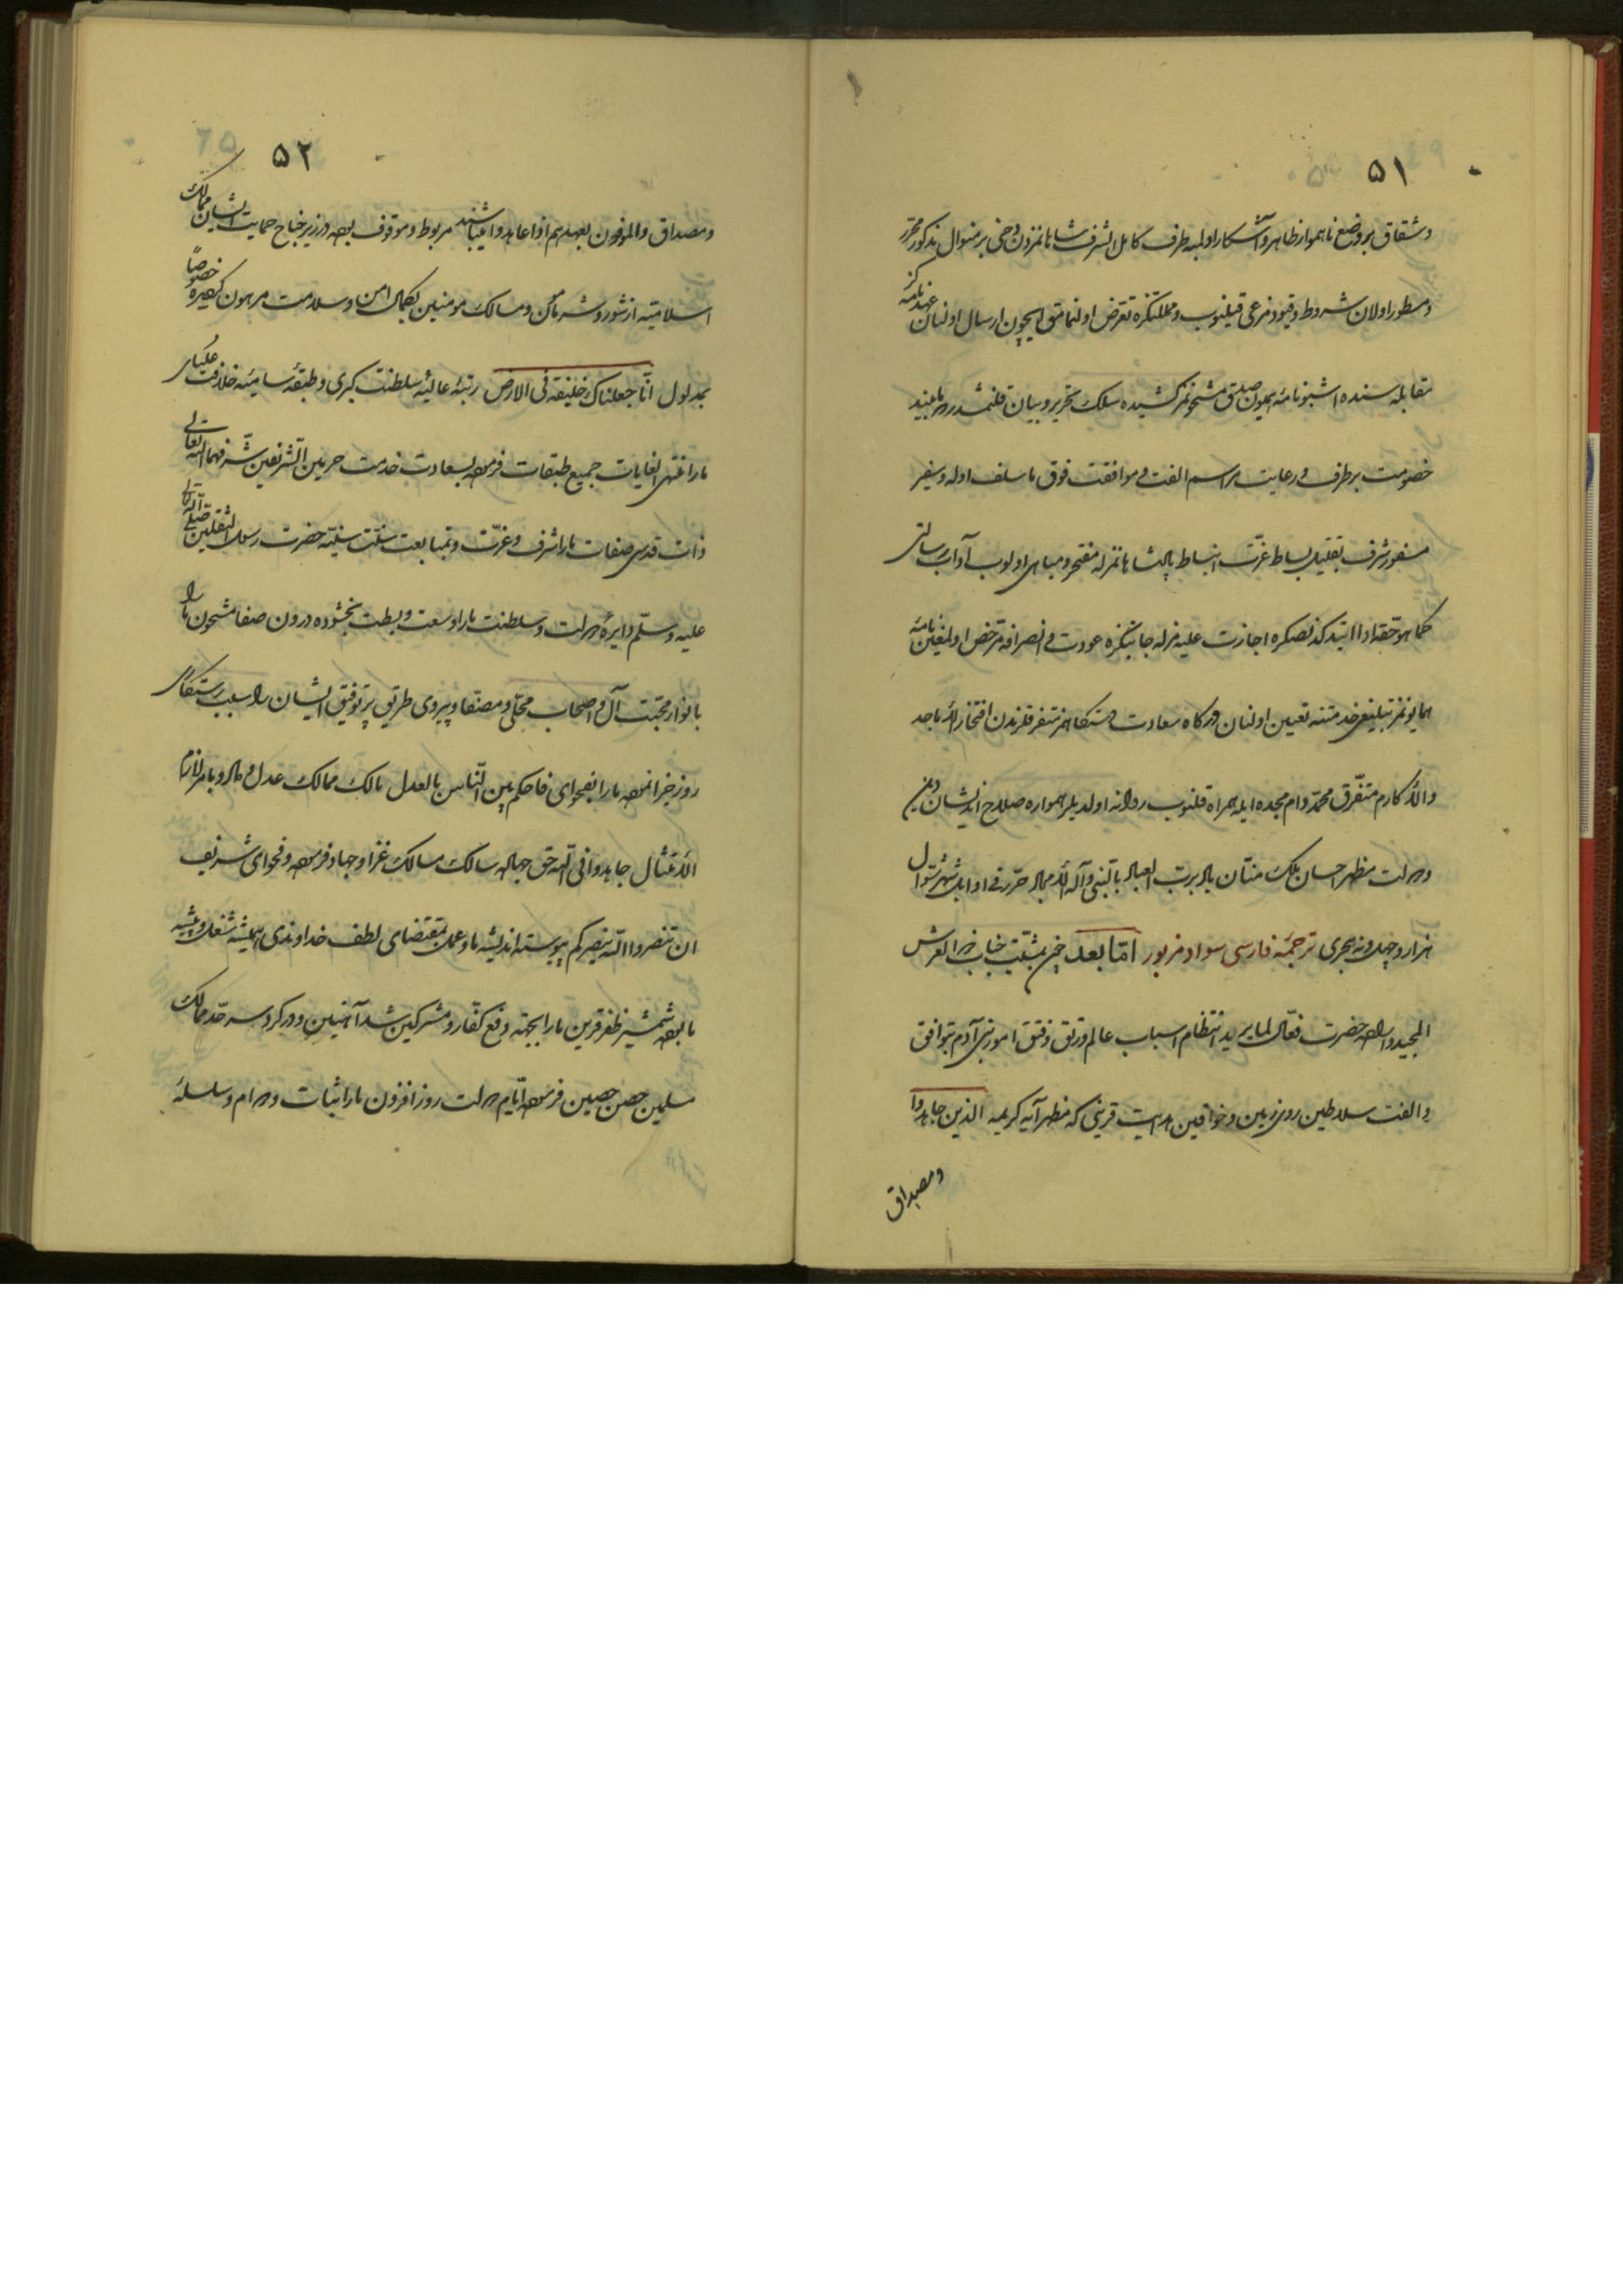 ٥١
وشقاق بر وضع ناهموار ظاهر و آشكار اولميه طرف كامل الشرف شاهانه‌مزدن دخى بر منوال مذكور محرّر
ومسطور اولان شروط وقيود مرعى قيلنوب ومملكتكزه تعرض اولنمامق ايچون ارسال اولنان عهدنامه‌كز
مقابله‌سنده اشبو نامهٔ همايون صدق مشحونمز كشيدهٔ سلك تحرير وبيان قلنمشدر مابيند
خصومت برطرف ورعايت مراسم الفت وموافقت فوق ماسلف اوله وسفير
مسفور شرف تقبيل بساط عزّت انبساط پادشاهانه‌مزله مفتخر ومباهى اولوب آداب رسالتى
كما هو حقه ادا ايتدكدنصكره اجازت عليه‌مزله جانبكزه عودت وانصرافه مرخص اولمغين نامهٔ
همايونمز تبليغى خدمتنه تعيين اولنان دركاه سعادت دستكاهمز متفرقه‌لرندن افتخار الاماجد
والاكارم متفرق محمد دام مجده ايله همراه قلنوب روانه اولديلر همواره صلاح انديشان دين
ودولت مظهر احسان ملك منان باد بربّ العباد بالنبى وآله الامجاد حرّر فى اوايل شهر شوال
هزار وچهل ونه هجرى ترجمهٔ فارسى سواد مزبور امّا بعد چون بمشيّت جناب ذو العرش
المجيد واراده حضرت فعّال لما يريد انتظام اسباب عالم ورتق وفتق امور بنى آدم بتوافق
والفت سلاطين روى زمين وخواقين هدايت قرينى كه مظهر آيهٔ كريمه الذين جاهدوا
ومصداق
٥٢
ومصداق والموفون بعهدهم اذا عاهدوا ميباشند مربوط وموقوف بوده ودر زير جناح حمايت ايشان ممالك
اسلاميه از شور وشر مأمن ومسالك مومنين بكمال امن وسلامت مرهون كرديده خصوصاً
بمدلول انّا جعلناك خليفة فى الارض رتبهٔ عاليهٔ سلطنت كبرى وطبقهٔ ساميهٔ خلافت عليا
مارا منتهى الغايات جميع طبقات فرموده بسعادت خدمت حرمين الشريفين شرفهما الله تعالى
ذات قدسى صفات مارا شرف وعزّت وبمتابعت سنّت سنيّه حضرت رسول الثقلين صلى الله تعالى
عليه وسلّم دايرهٔ دولت وسلطنت مارا وسعت وبسطت بخشوده درون صفا مشحون ما را
بانوار محبّت آل واصحاب محلّى ومصفا وپيروى طريق پر توفيق ايشان را سبب رستكارى
روز جزا نموده مارا بفحواى فاحكم بين النّاس بالعدل مالك ممالك عدل وداد وبامر لازم
الامتثال جاهدوا فى الله حق جهاده سالك مسالك غزا وجهاد فرموده وفحواى شريف
ان تنصروا الله ينصركم پيوسته انديشه ما وعمل بمقتضاى لطف خداوندى هميشه شغل وپيشهٔ
ما بوده شمشير ظفر قرين مارا بجهة دفع كفّار ومشركين سدّ آهنين ودر كرد سرحدّ ممالك
مسلمين حصن حصين فرموده ايّام دولت روز افزون مارا ثبات ودوام وسلسلهٔ